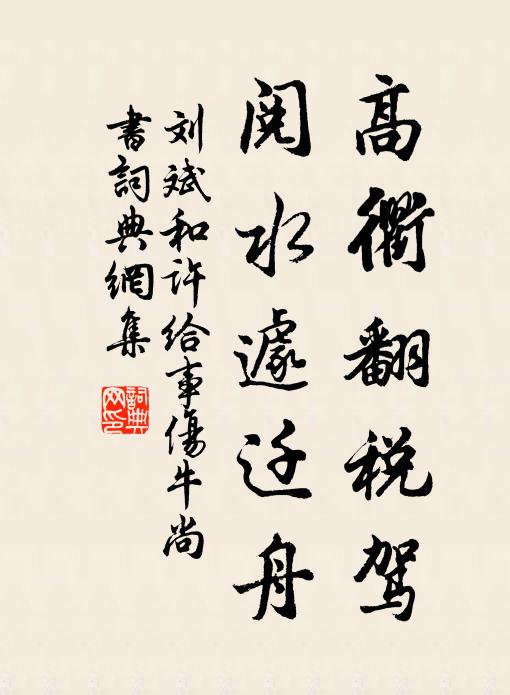 高衢翻税驾
阅水遽迁舟
刘斌和许给事傷牛尚
書詞典網集
詞典
网印